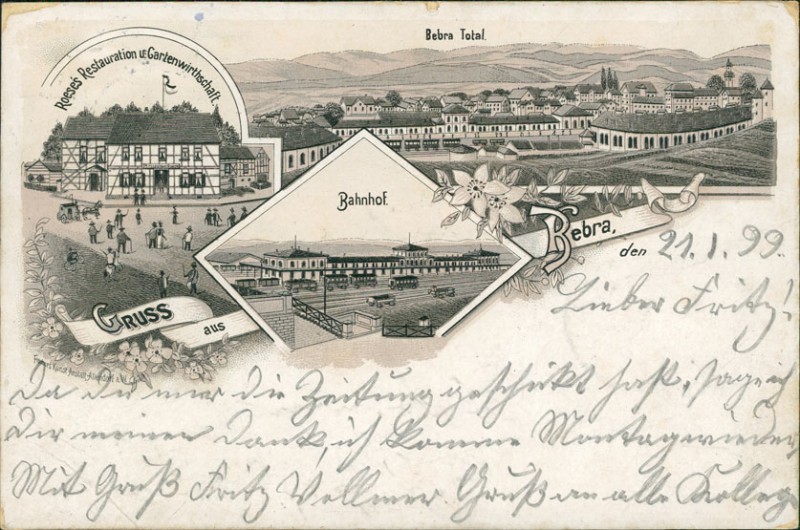 Bebra Total.
Roese's Restauration u. Gartenwirthschaft.
Bahnhof.
Gruss
aus
Bebra,
den 21.1.99.
Lieber Fritz!
Da du mir die Zeitung geschikt hast, sage ich
Dir meinen Dank, ich komme Montag wieder
Mit Gruß Fritz Vollmer Gruß an alle Kollege